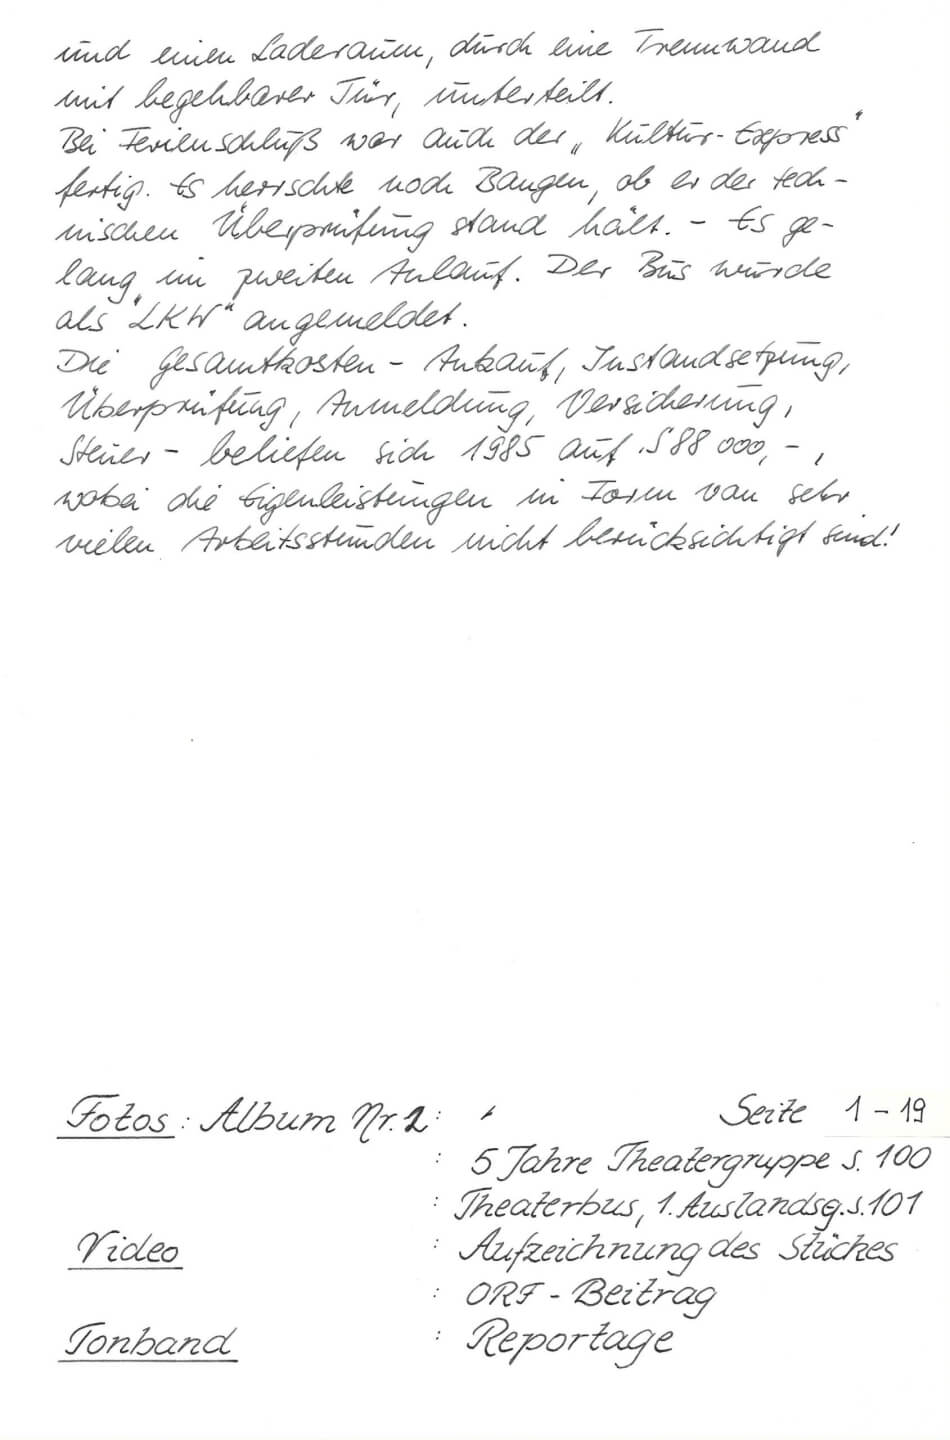 und einen Laderaum, durch eine Trennwand
mit begehbarer Tür, unterteilt.
Bei Ferienschluß war auch der „Kultur-Express"
fertig. Es herrschte noch Bangen, ob er der tech-
nischen Überprüfung stand hält. - Es ge-
lang im zweiten Anlauf. Der Bus wurde
als "LKW" angemeldet.
Die Gesamtkosten - Ankauf, Instandsetzung,
Überprüfung, Anmeldung, Versicherung,
Steuer - beliefen sich 1985 auf S 88 000,-,
wobei die Eigenleistungen in Form von sehr
vielen Arbeitsstunden nicht berücksichtigt sind!
Fotos: Album Nr. 2: Seite 1-19
: 5 Jahre Theatergruppe S. 100
: Theaterbus, 1. Auslandsg. S. 101
Video : Aufzeichnung des Stückes
: ORF - Beitrag
Tonband : Reportage